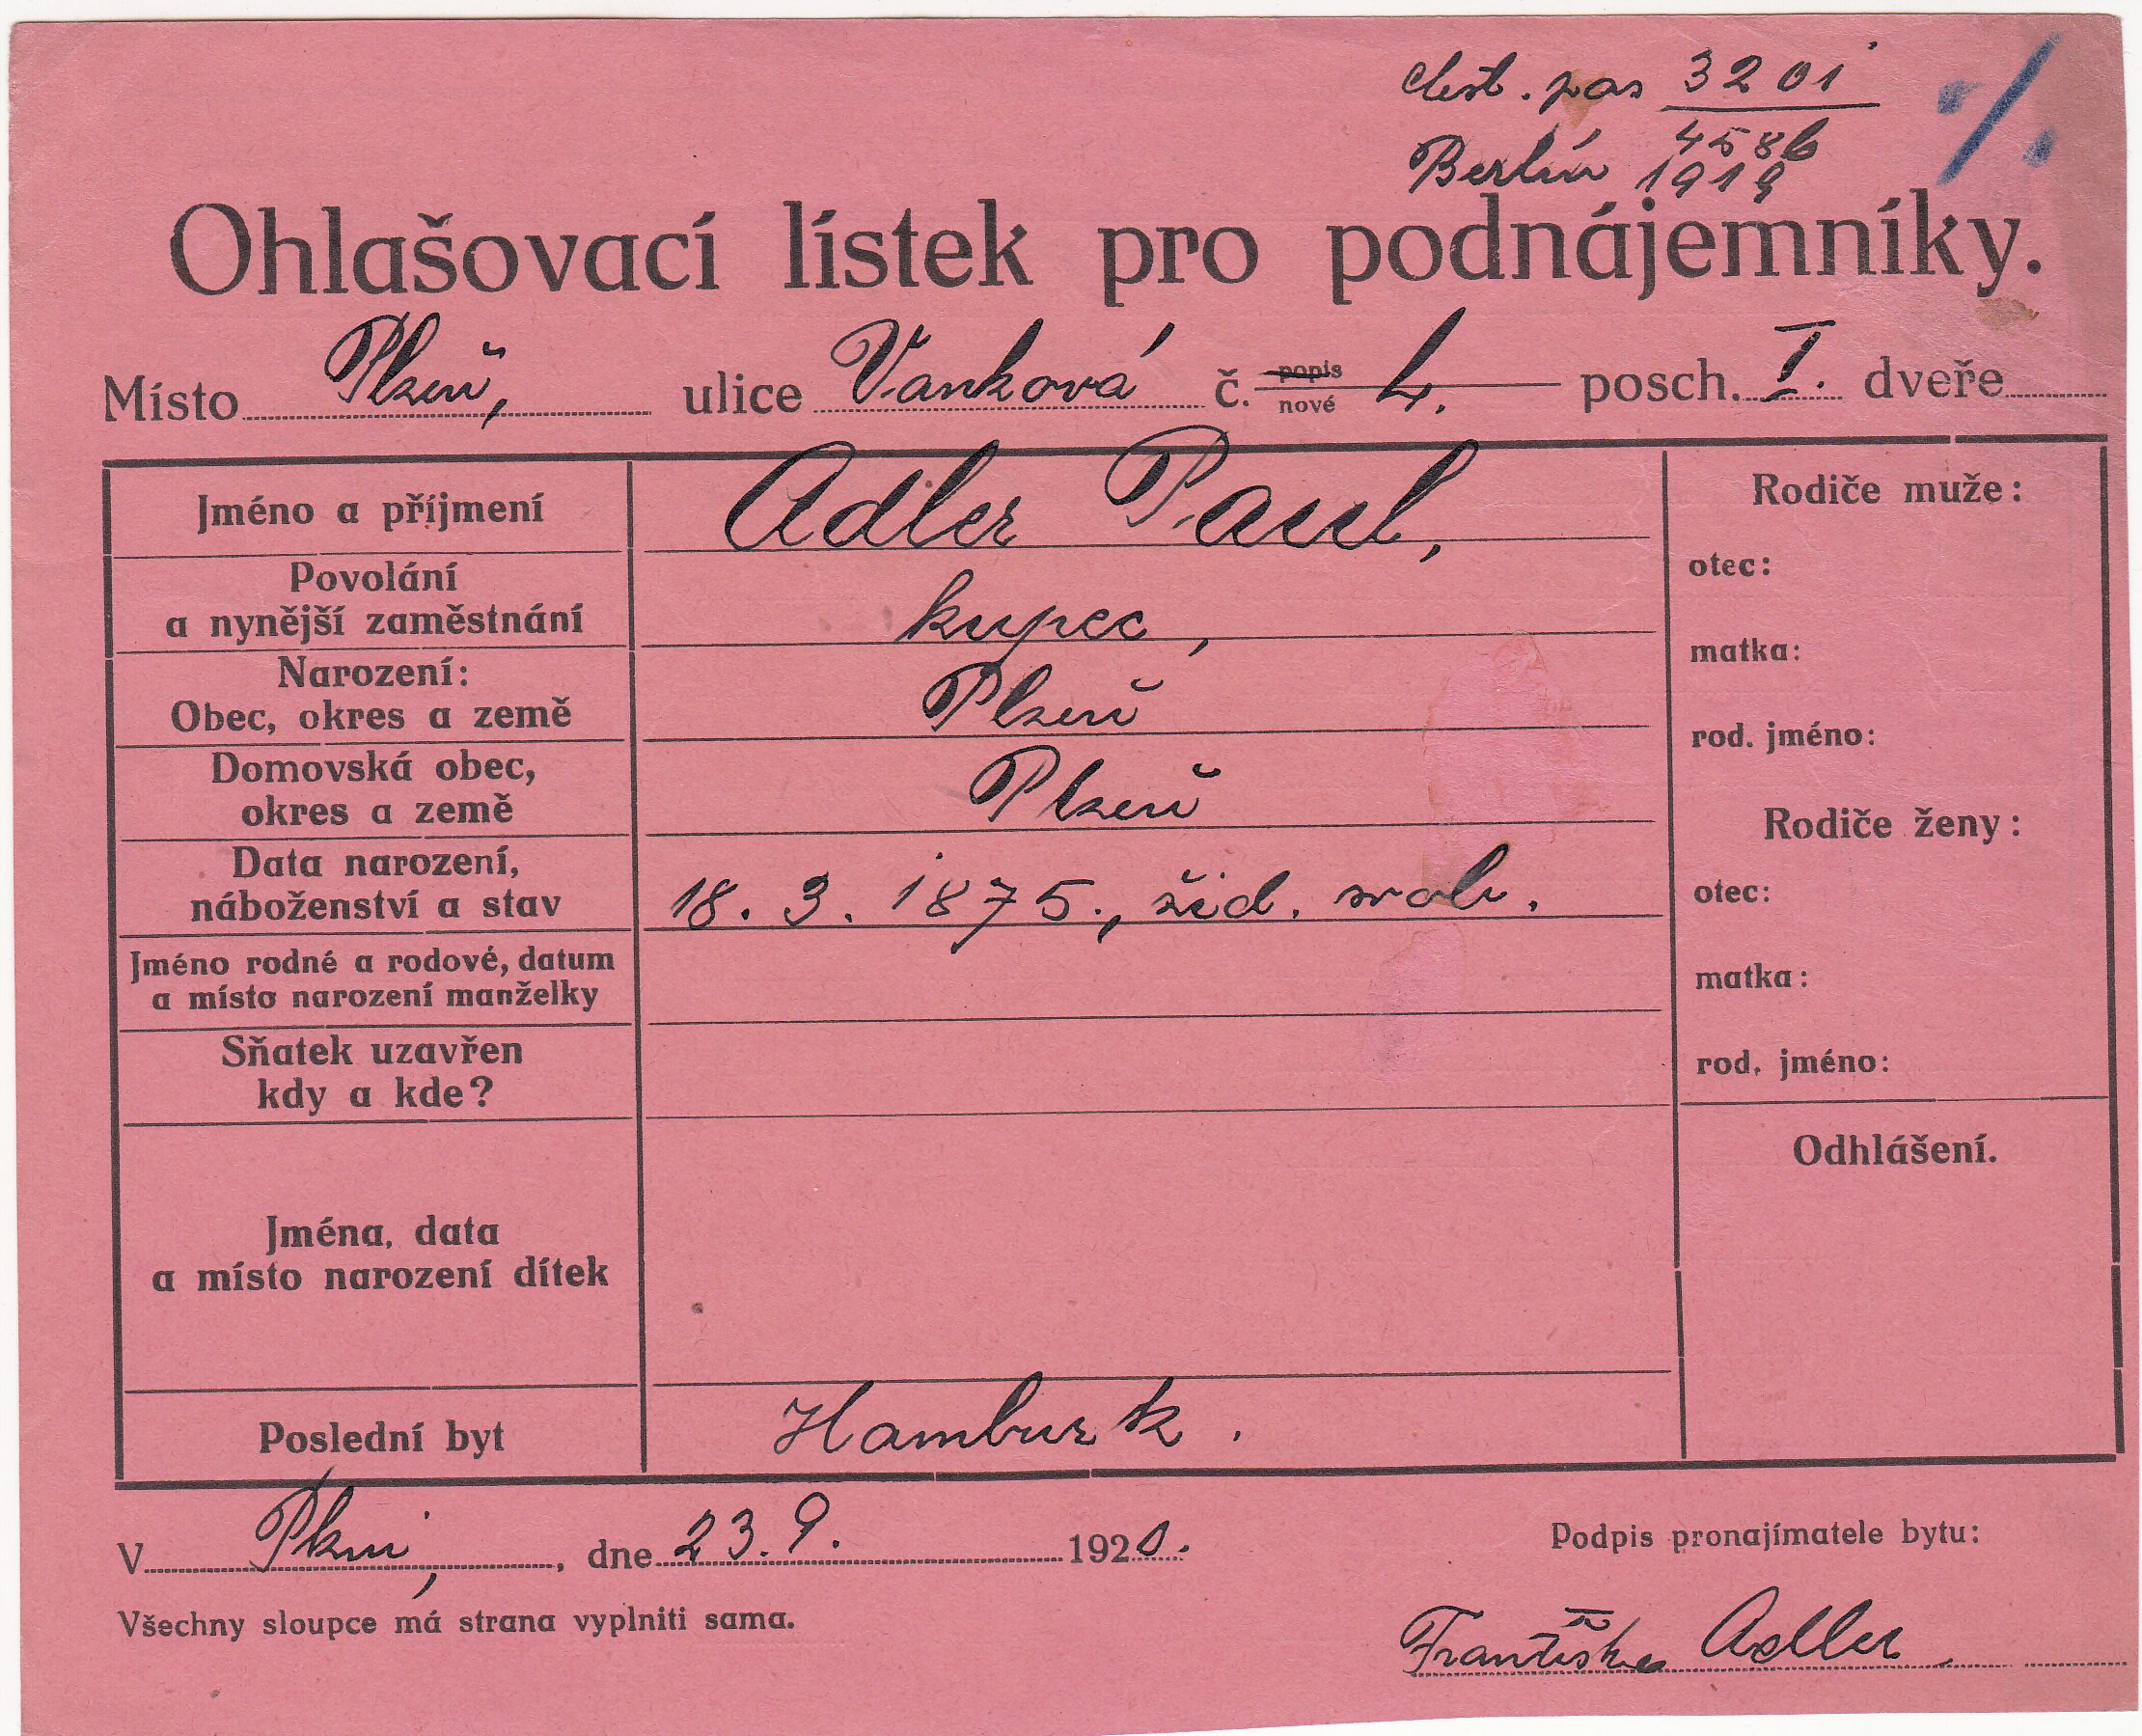 čest. pas 3201
4586
Berlín 1919
Ohlašovací lístek pro podnájemníky.
Místo Plzeň, ulice Vanková č. popis nové 4. posch. I. dveře
Jméno a příjmení Adler Paul,
Povolání
a nynější zaměstnání kupec,
Narození:
Obec, okres a země Plzeň
Domovská obec,
okres a země Plzeň
Data narození,
náboženství a stav 18. 3. 1875., žid. svob.
Jméno rodné a rodové, datum
a místo narození manželky
Sňatek uzavřen
kdy a kde?
Jména, data
a místo narození dítek
Poslední byt Hamburk.
Rodiče muže:
otec:
matka:
rod. jméno:
Rodiče ženy:
otec:
matka:
rod. jméno:
Odhlášení.
V Plzni, dne 23. 9. 1920.
Podpis pronajímatele bytu:
Všechny sloupce má strana vyplniti sama.
Adler